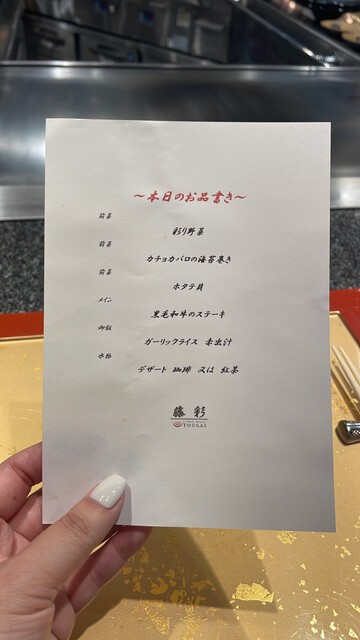 ～本日のお品書き～
前菜
彩り野菜
前菜
カチョカバロの海苔巻き
前菜
ホタテ貝
メイン
黒毛和牛のステーキ
御飯
ガーリックライス 赤出汁
水物
デザート 珈琲 又は 紅茶
藤彩
TOUSAI